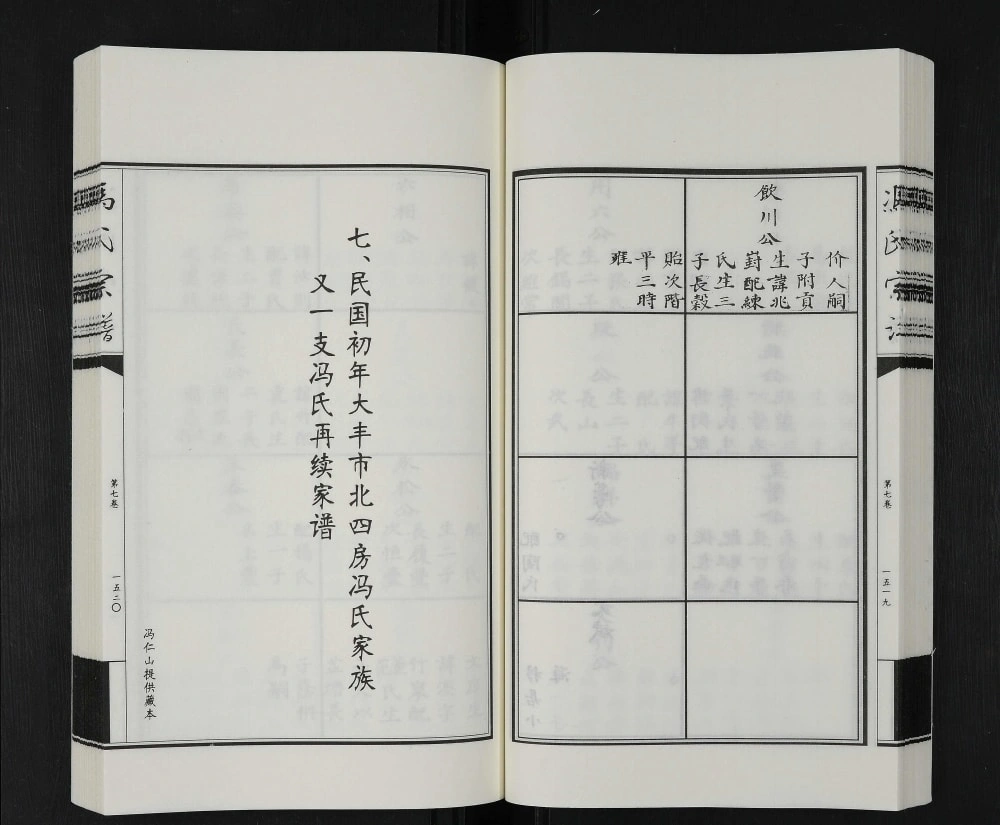 冯氏宗谱
第七卷
一五一九
飲川公
价人嗣
子附貢
生諱兆
葑配練
氏生三
子長穀
貽次階
平三時
雍
七、民国初年大丰市北四房冯氏家族
又一支冯氏再续家谱
冯仁山提供藏本
冯氏宗谱
第七卷
一五二〇